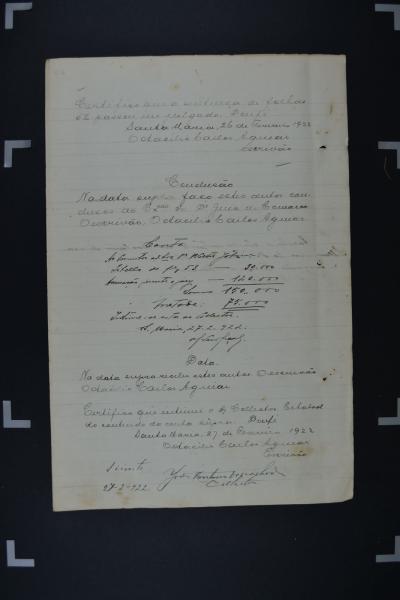 Certifico que a sentença de folhas
52 passou em julgado. Dou fé
Santa Maria, 26 de Fevereiro 1922
Octacilio Carlos Aguiar
Escrivão
Conclusão
Na data supra faço estes autos con-
clusos ao Exmo Sr. Dr. Juiz de Comarca
O escrivão, Octacilio Carlos Aguiar
Conta
de fs 53 — 30.000
— 120.000
Somma 150.000
Metade: 75.000
S. Maria, 27-2-922.
Data
Na data supra recebi estes autos O escrivão
Octacilio Carlos Aguiar
Certifico que intimei o Collector Estadual
do conteudo da conta supra. Dou fé
Santa Maria, 27 de Fevereiro 1922
Octacilio Carlos Aguiar
Escrivão
Sciente
27-2-922
Collector